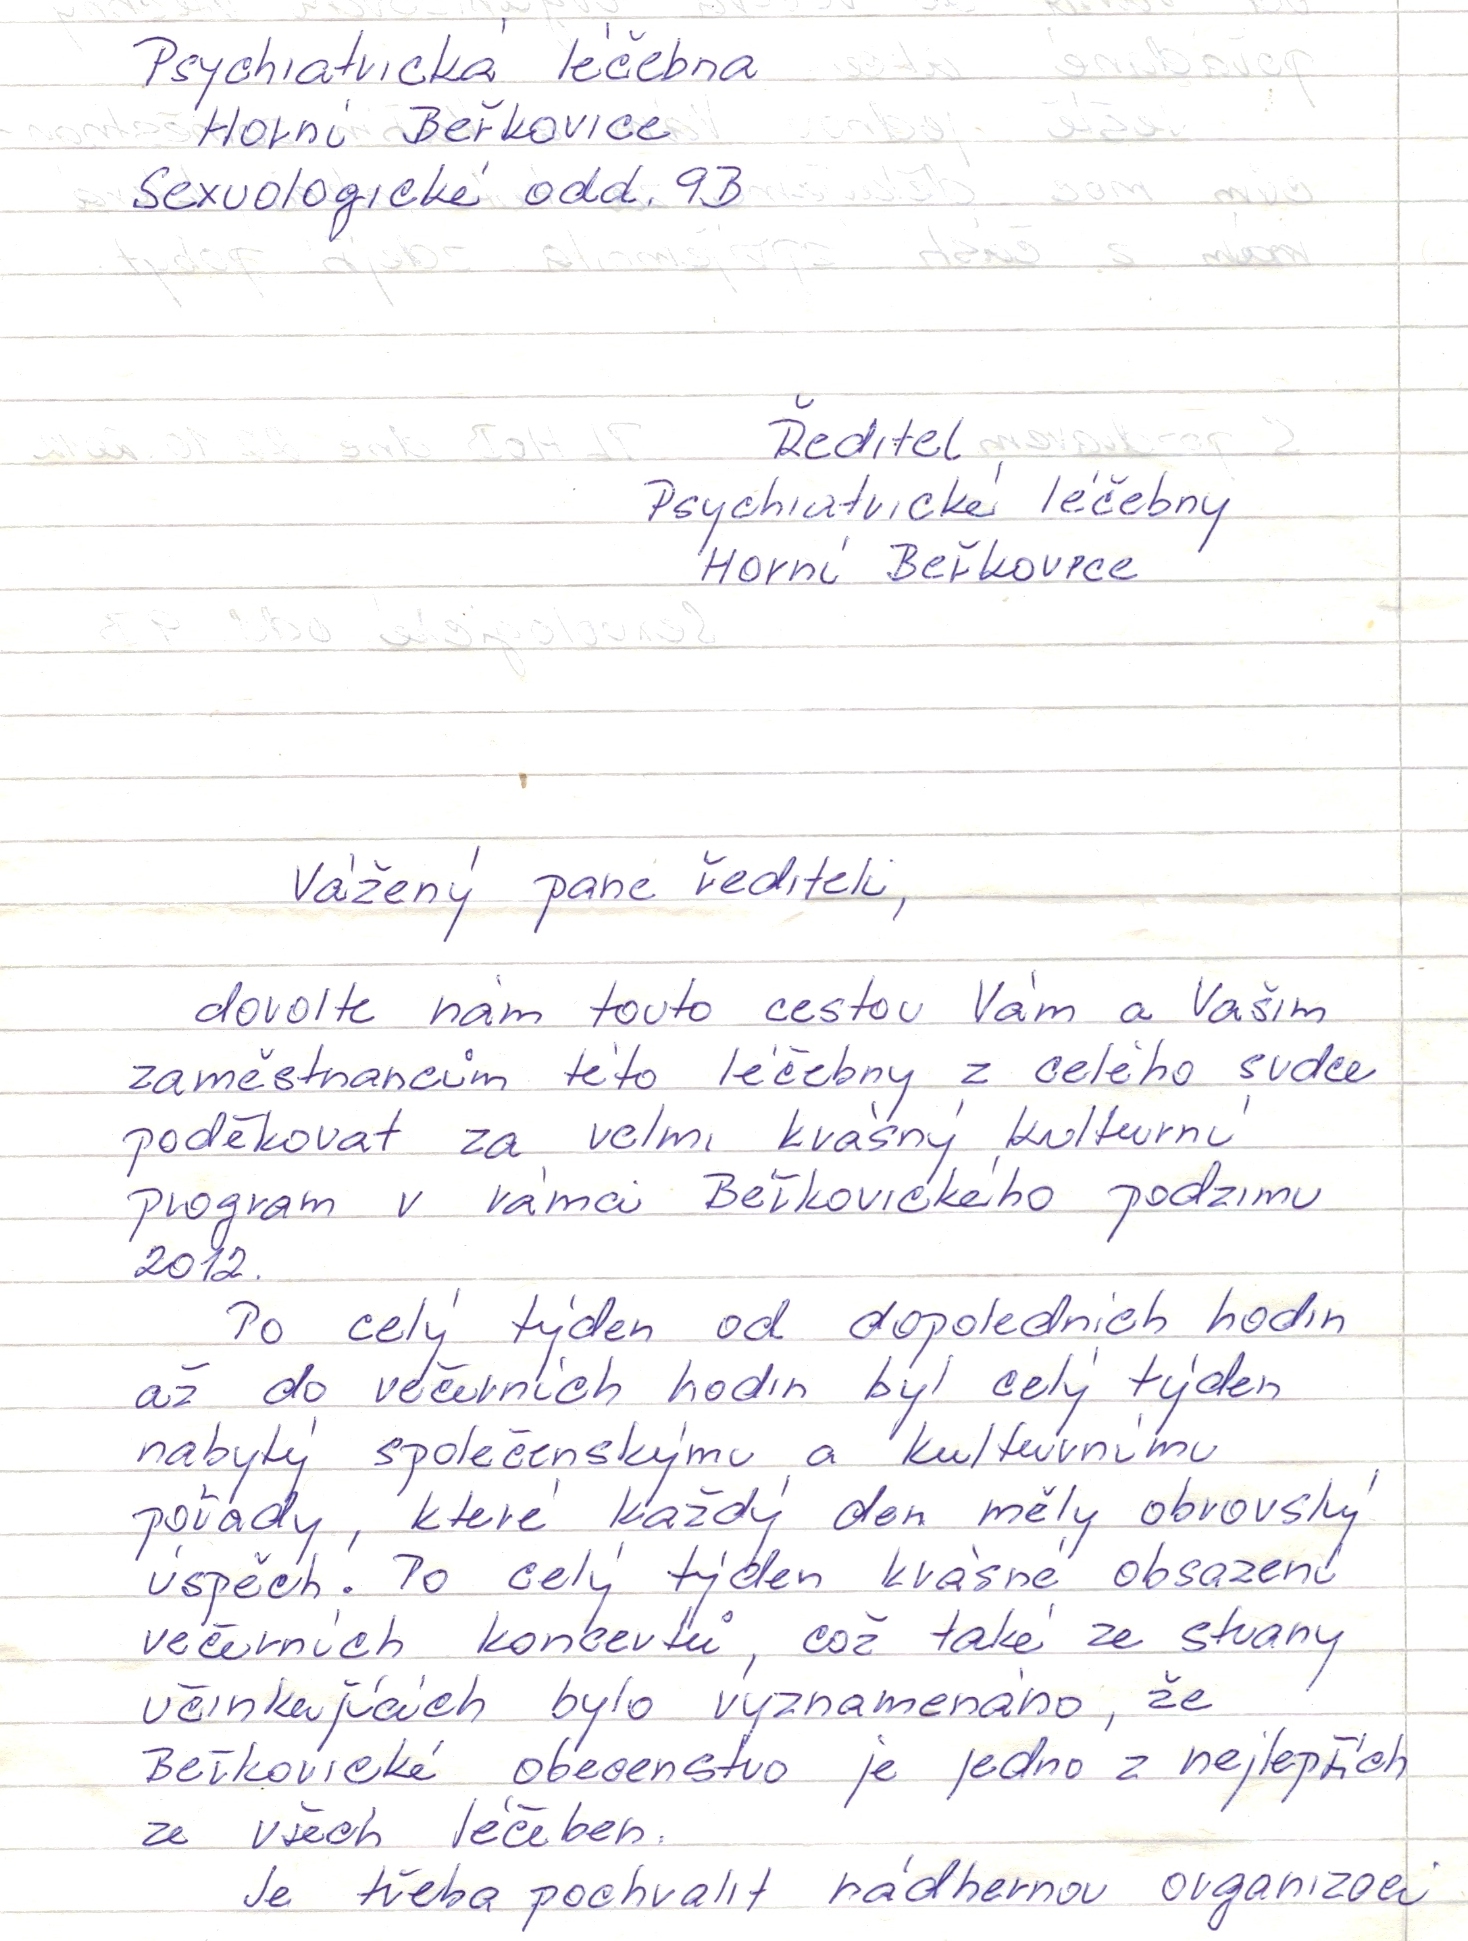 Psychiatrická léčebna
Horní Beřkovice
Sexuologické odd. 9B
Ředitel
Psychiatrické léčebny
Horní Beřkovice
Vážený pane řediteli,
dovolte nám touto cestou Vám a Vašim
zaměstnancům této léčebny z celého srdce
poděkovat za velmi krásný kulturní
program v rámci Beřkovického podzimu
2012.
Po celý týden od dopoledních hodin
až do večerních hodin byl celý týden
nabytý společenskýmu a kulturnímu
pořady, které každý den měly obrovský
úspěch. Po celý týden krásné obsazení
večerních koncertů, což také ze strany
účinkujících bylo vyznamenáno, že
Beřkovické obecenstvo je jedno z nejlepších
ze všech léčeben.
Je třeba pochvalit nádhernou organizaci